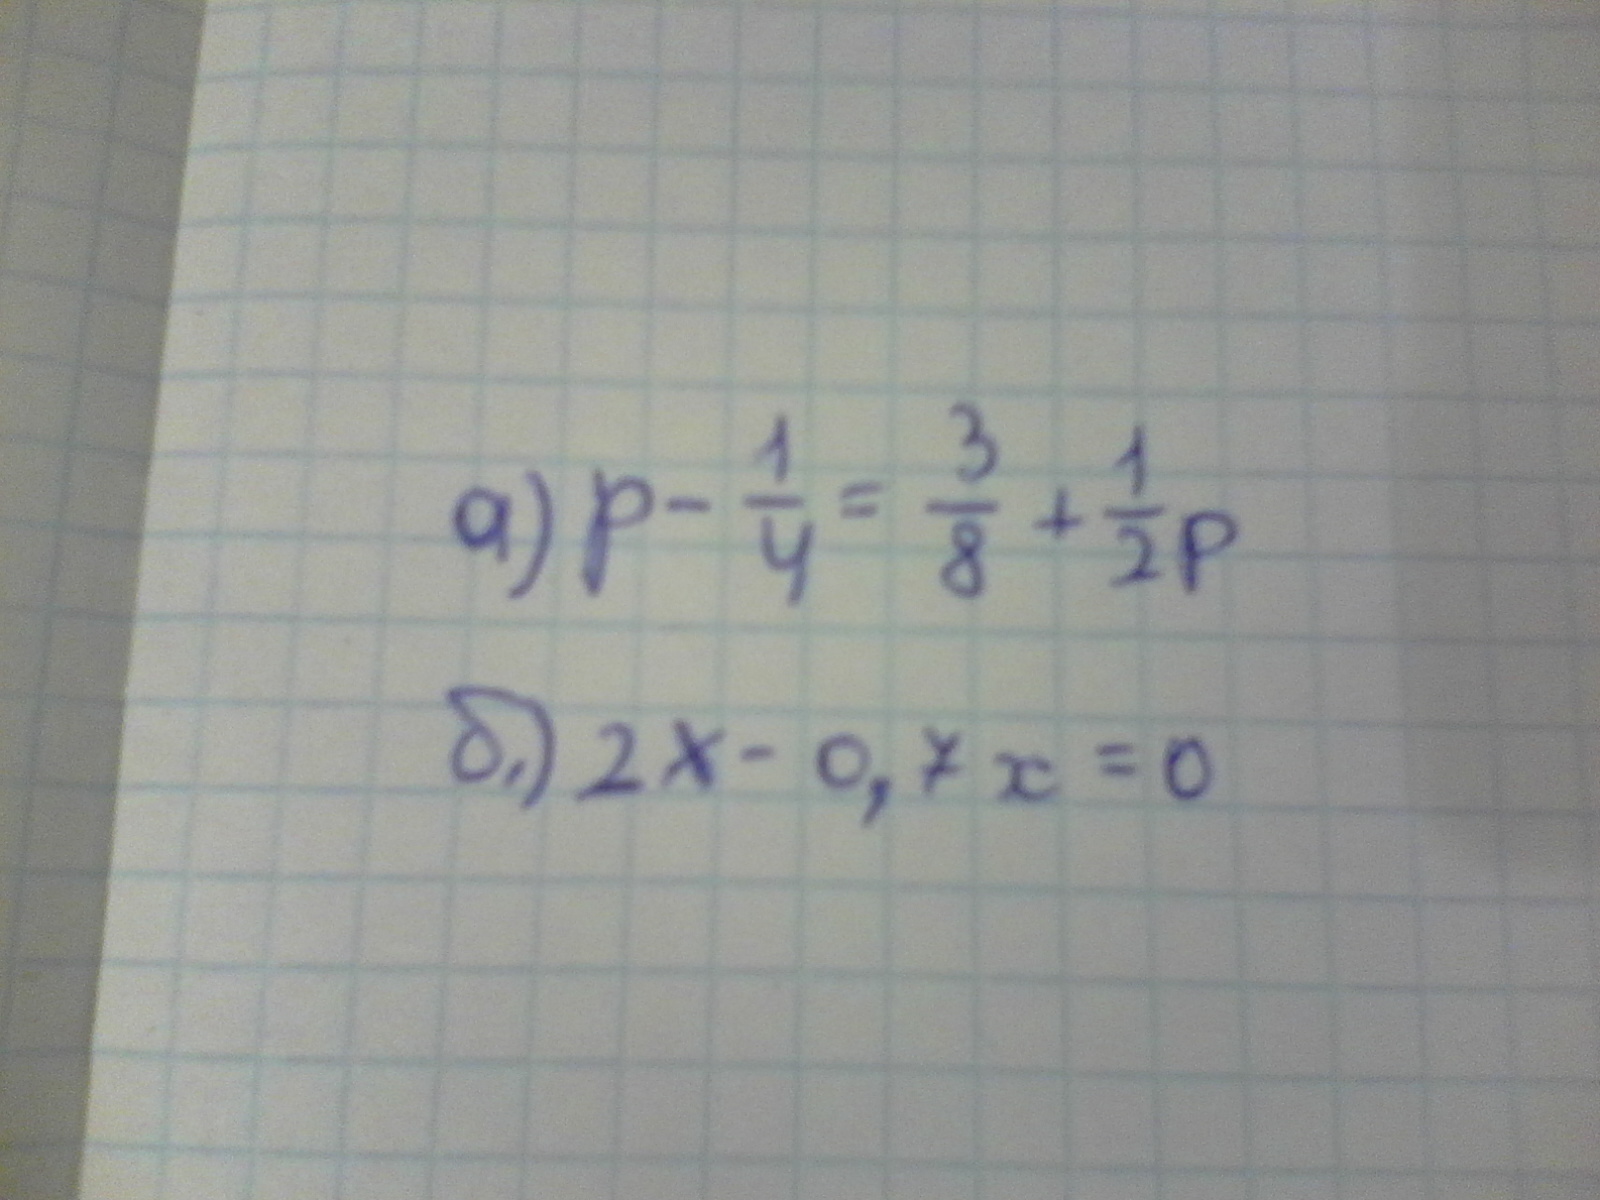 а) p - 1/4 = 3/8 + 1/2 p
б.) 2x - 0,7x = 0